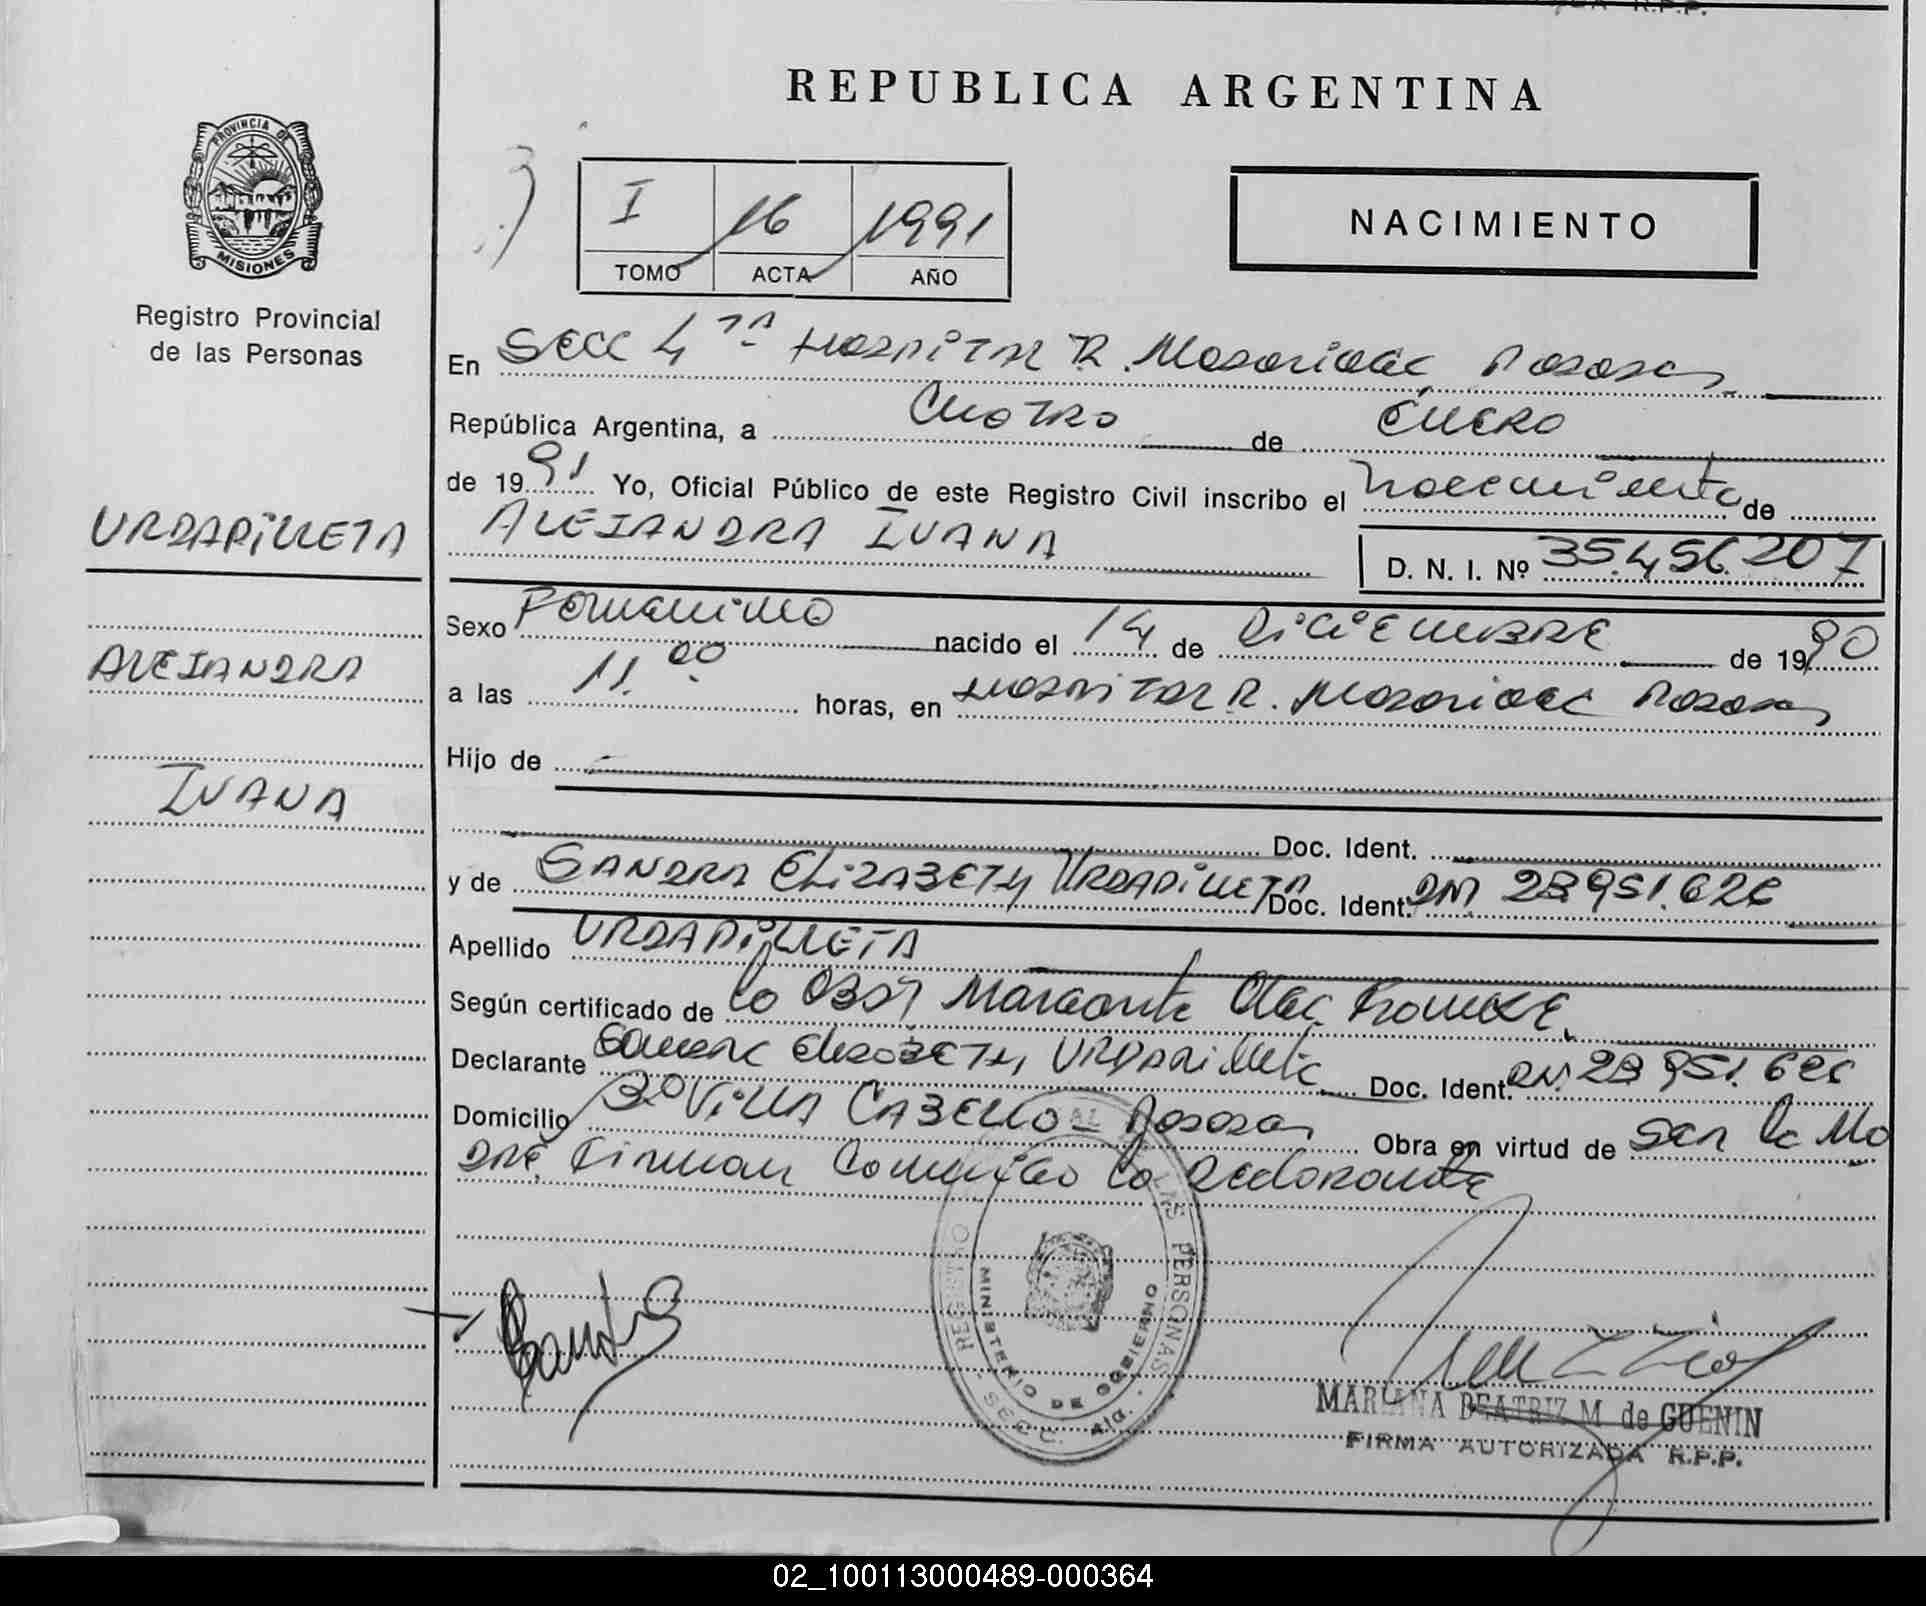 R.P.P.
REPUBLICA ARGENTINA
PROVINCIA DE
MISIONES
Registro Provincial
de las Personas
I 16 1991
TOMO ACTA AÑO
NACIMIENTO
En SECC 4ta HOSPITAL R. Madariaga Posadas
República Argentina, a CUATRO de ENERO
de 1991 Yo, Oficial Público de este Registro Civil inscribo el nacimiento de
ALEJANDRA IVANA
D. N. I. Nº 35.456.207
URDAPILLETA
ALEJANDRA
IVANA
Sexo Femenino nacido el 14 de DICIEMBRE de 1990
a las 11.00 horas, en HOSPITAL R. Madariaga Posadas
Hijo de
Doc. Ident.
y de SANDRA ELIZABETH URDAPILLETA Doc. Ident. DNI 23951.626
Apellido URDAPILLETA
Según certificado de la OBST
Declarante Sandra ELIZABETH URDAPILLETA Doc. Ident. DNI 23951.626
Domicilio Bº VILLA CABELLO - Posadas Obra en virtud de Ser la Ma
dre Firman Conmigo la declarante
REGISTRO LAS PERSONAS
MINISTERIO DE GOBIERNO
SECC. 4ta.
MARIANA BEATRIZ M. de GUENIN
FIRMA AUTORIZADA R.P.P.
02_100113000489-000364